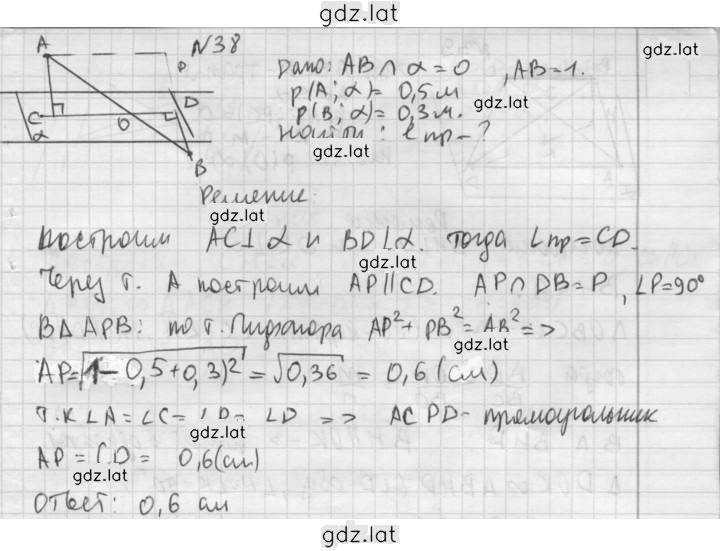 gdz.lat
N38
Дано: AB∩α=O, AB=1.
ρ(A; α)= 0,5м
ρ(B; α)= 0,3м.
Найти: ℓпр-?
A
P
D
C
O
α
B
gdz.lat
gdz.lat
Решение.
gdz.lat
Построим AC⊥α и BD⊥α. тогда ℓпр=CD.
gdz.lat
Через т. A построим AP∥CD. AP∩DB=P, ∠P=90°
В△APB: по т. Пифагора AP²+PB²=AB² =>
gdz.lat
AP=√1-(0,5+0,3)² = √0,36 = 0,6(см)
т.к ∠A=∠C=∠P=∠D => ACPD-прямоугольник
AP = CD = 0,6(см)
gdz.lat
Ответ: 0,6 см
gdz.lat